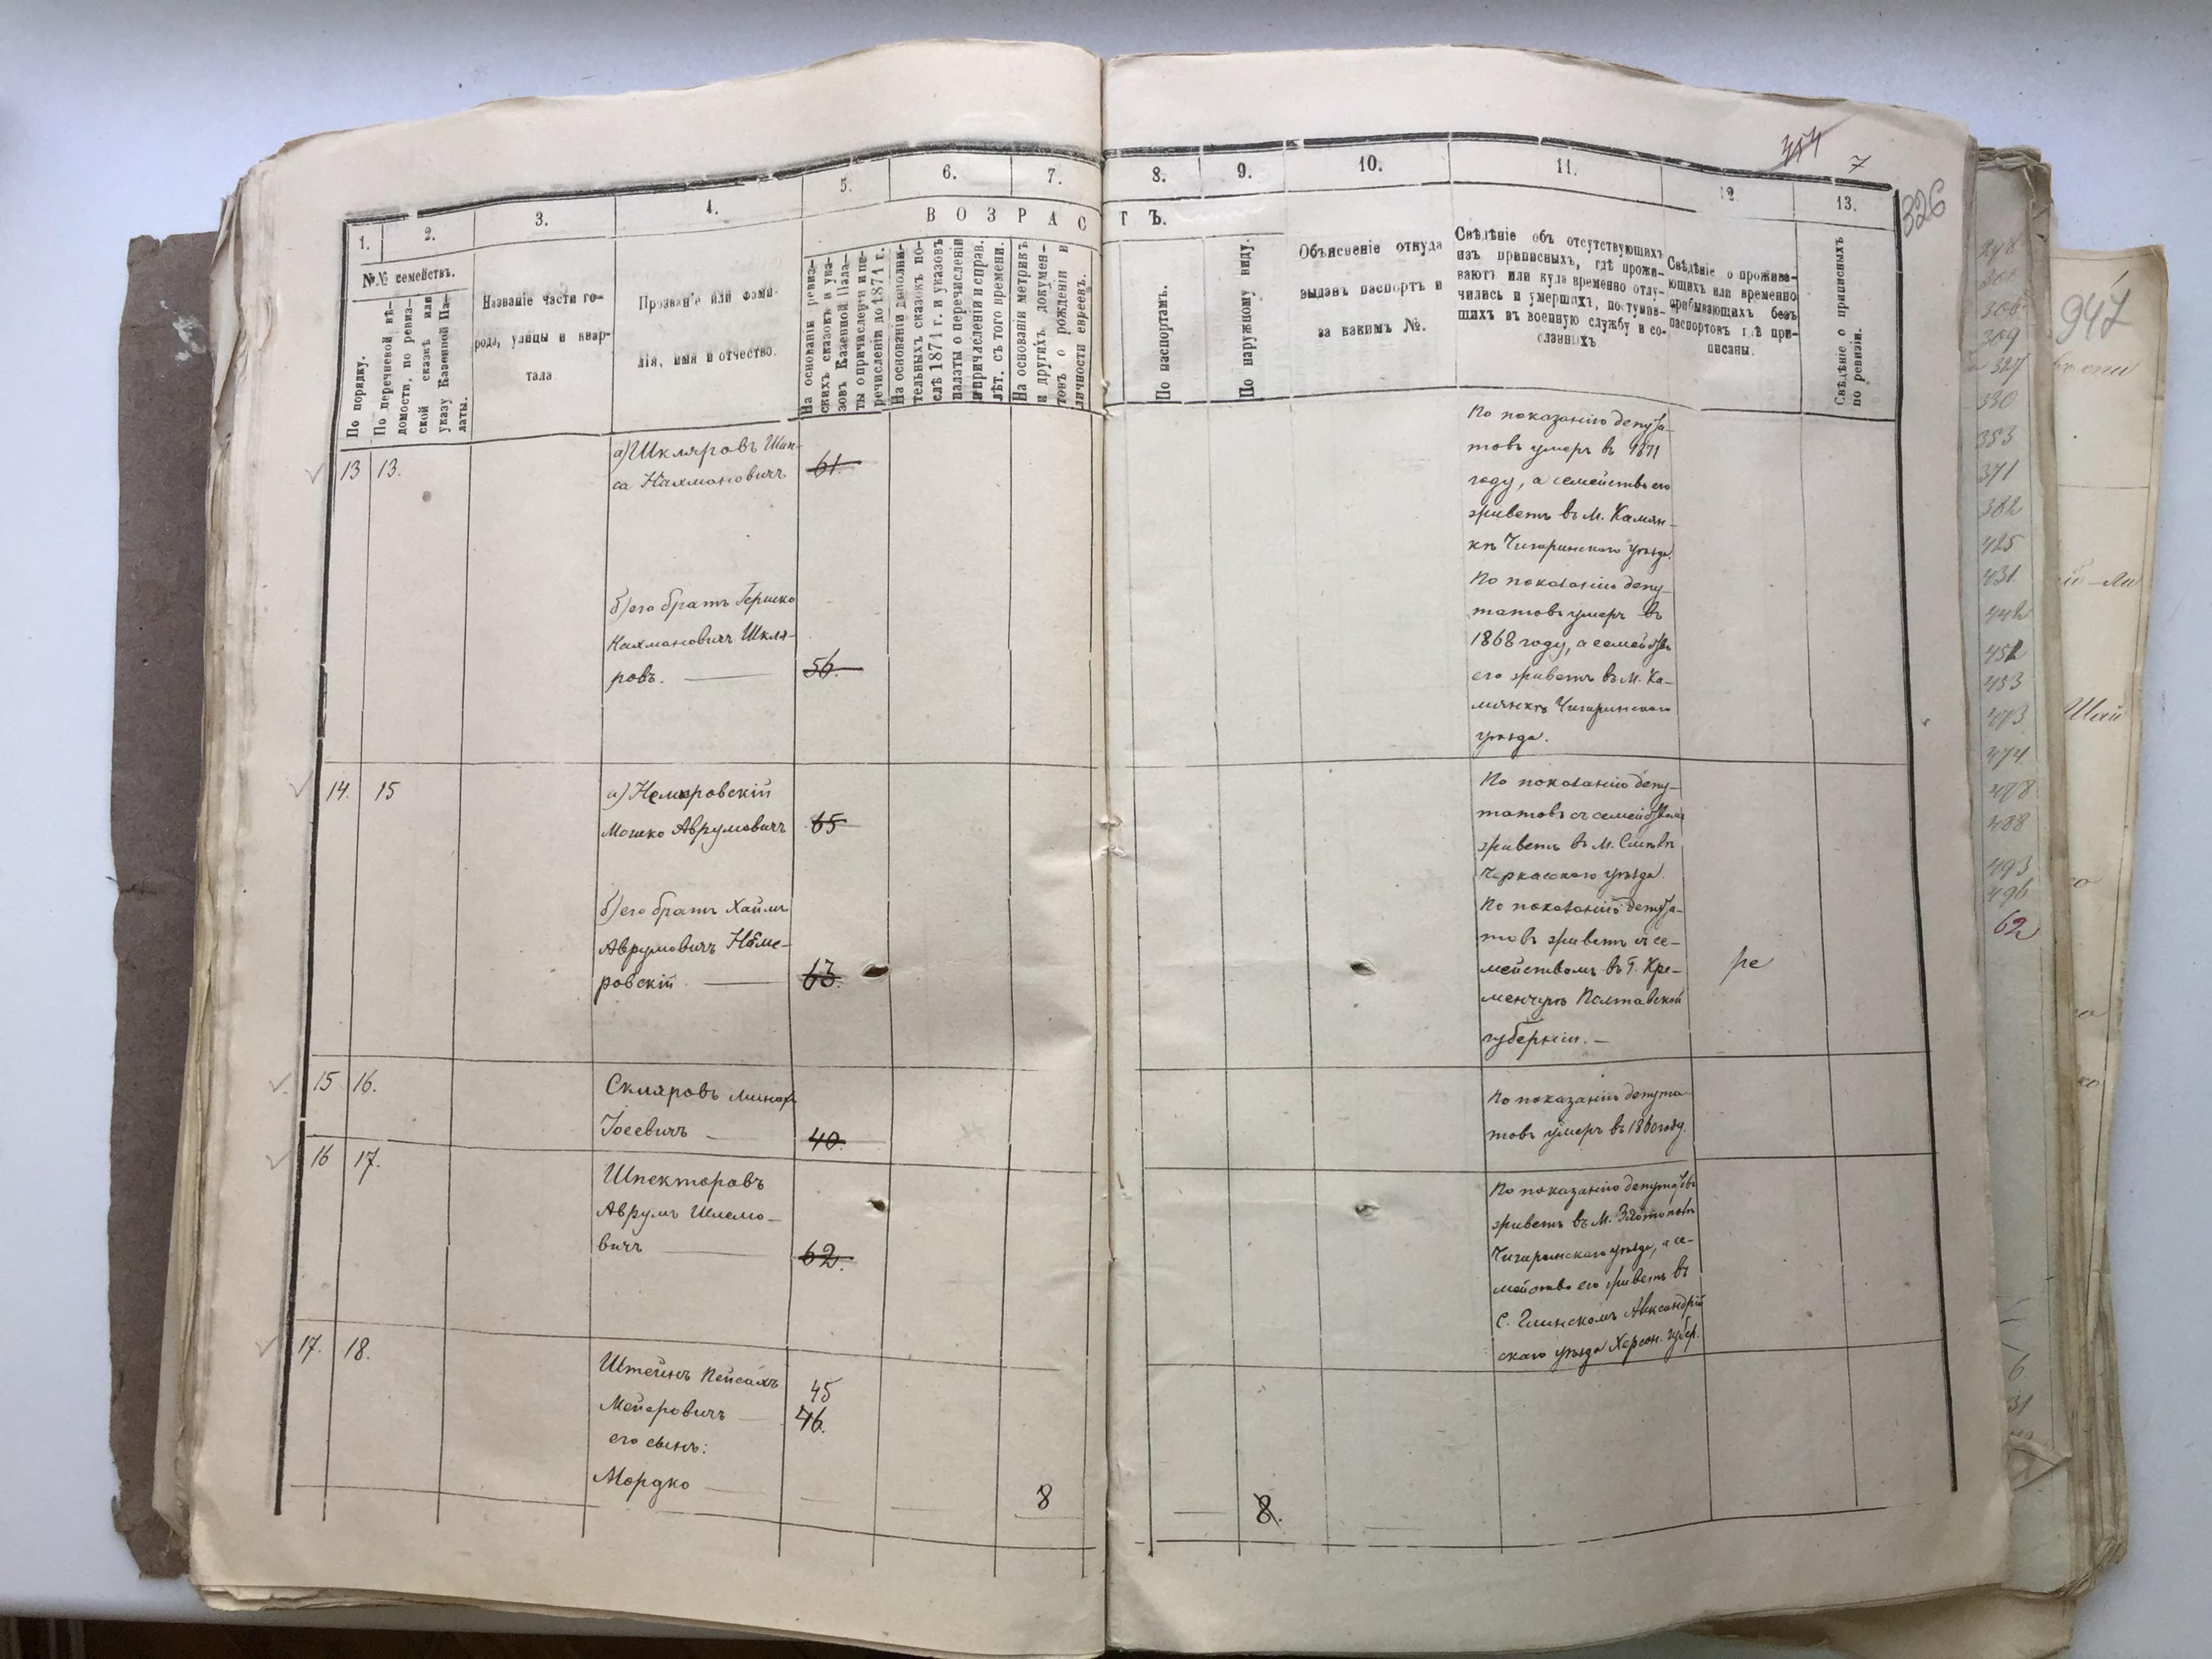 1.
2.
3.
4.
5.
6.
7.
8.
9.
10.
11.
12.
13.
7
326
ВОЗРАСТЪ.
№№ семействъ.
По порядку.
По перечневой вѣ-
домости, по ревиз-
ской сказкѣ или
указу Казенной Па-
латы.
Названіе части го-
рода, улицы и квар-
тала
Прозваніе или фами-
лія, имя и отчество.
На основаніи ревиз-
скихъ сказокъ и ука-
зовъ Казенной Пала-
ты о причисленіи и пе-
речисленіи до 1874 г.
На основаніи дополни-
тельныхъ сказокъ по-
слѣ 1874 г. и указовъ
палаты о перечисленіи
и причисленіи и справ.
лѣт. съ того времени.
На основаніи метрикъ
и другихъ докумен-
товъ о рожденіи и
личности евреевъ.
По паспортамъ.
По наружному виду.
Объясненіе откуда
выданъ паспортъ и
за какимъ №.
Свѣдѣніе объ отсутствующихъ
изъ приписныхъ, гдѣ прожи-
ваютъ или куда временно отлу-
чились и умершихъ, поступив-
шихъ въ военную службу и со-
сланныхъ
Свѣдѣніе о прожива-
ющихъ или временно
прибывающихъ безъ
паспортовъ гдѣ при-
писаны.
Свѣдѣніе о приписныхъ
по ревизіи.
13 13.
а) Шкляровъ Шап-
са Нахмановичъ
61.
По показанію депута-
товъ умеръ въ 1871
году, а семейство его
живетъ въ М. Камян-
кѣ Чигиринского уѣзда.
б) его братъ Гершко
Нахмановичъ Шкля-
ровъ.
56.
По показанію депу-
татовъ умеръ въ
1868 году, а семейство
его живетъ въ М. Ка-
мянкѣ Чигиринского
уѣзда.
14. 15
а) Немировскій
Мошко Аврумовичъ
65
По показанію депу-
татовъ съ семействомъ
живетъ въ М. Смѣлѣ
Черкасского уѣзда.
б) его братъ Хаимъ
Аврумовичъ Неме-
ровскій.
63.
По показанію депута-
товъ живетъ съ се-
мействомъ въ Г. Кре-
менчугѣ Полтавской
губерніи.
15 16.
Скляровъ
Іосевичъ
40.
По показанію депута-
товъ умеръ въ 1860 году.
16 17.
Шпекторовъ
Аврумъ Шлемо-
вичъ
62.
По показанію депутатовъ
живетъ въ М. Златополѣ
Чигиринскаго уѣзда, а се-
мейство его живетъ въ
С. Глинскомъ Александрій
скаго уѣзда Херсон. губер.
17. 18.
Штейнъ Пейсахъ
Мейеровичъ
45
46.
его сынъ:
Мордко
8
8.
947
309
327
330
353
371
382
425
431.
442
452
453
473
474
478
488
493
496
62
Шай